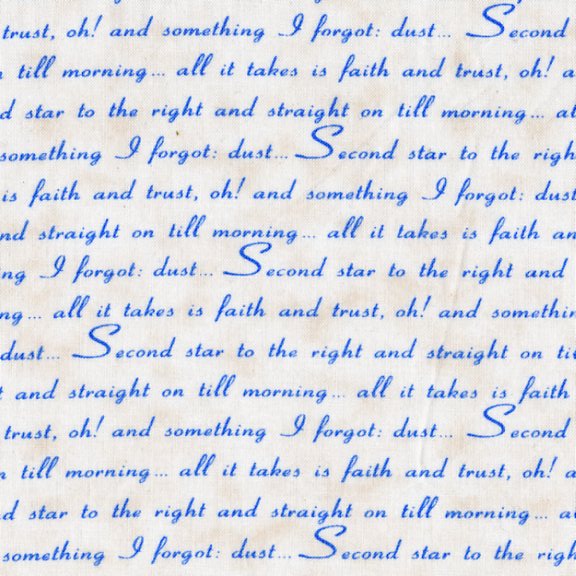 trust, oh! and something I forgot: dust... Second
till morning... all it takes is faith and trust, oh!
star to the right and straight on till morning...
something I forgot: dust... Second star to the
is faith and trust, oh! and something I forgot: dust
straight on till morning... all it takes is faith
I forgot: dust... Second star to the right and
all it takes is faith and trust, oh! and
dust... Second star to the right and straight on
and straight on till morning... all it takes is faith
trust, oh! and something I forgot: dust... Second
till morning... all it takes is faith and trust, oh!
star to the right and straight on till morning...
something I forgot: dust... Second star to the